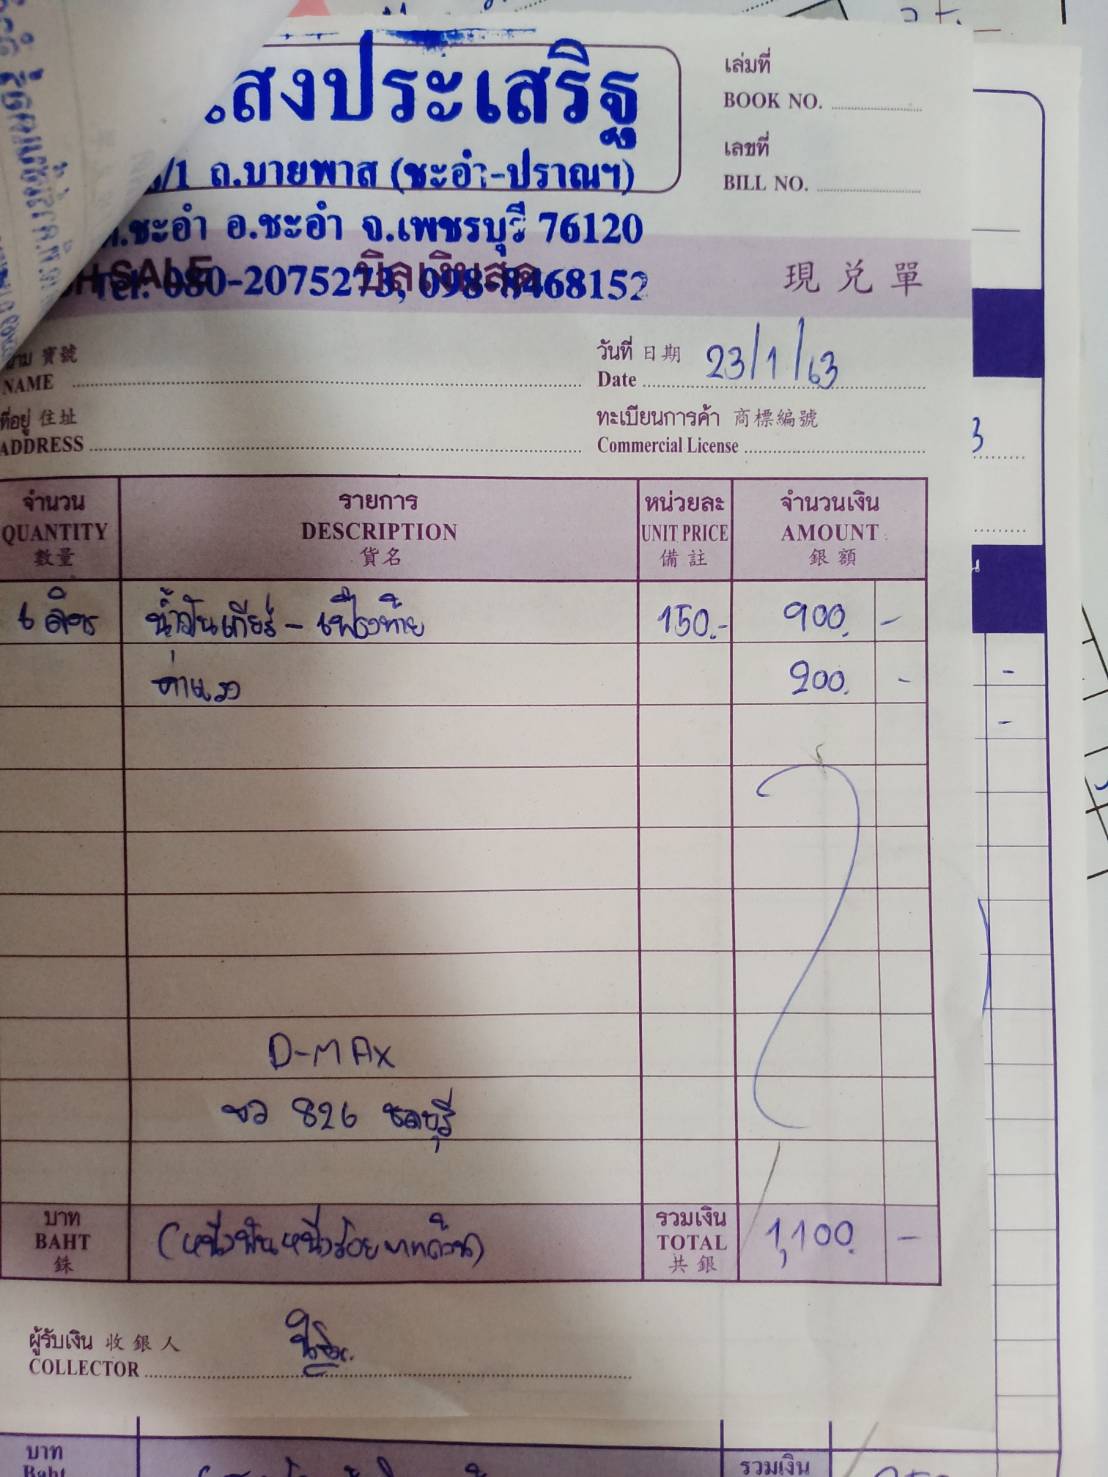 .สงประเสริฐ
/1 ถ.บายพาส (ชะอำ-ปราณฯ)
ต.ชะอำ อ.ชะอำ จ.เพชรบุรี 76120
Tel. 080-2075273, 098-8468152
SALE บิลเงินสด 現兑單
เล่มที่
BOOK NO.
เลขที่
BILL NO.
寶號
NAME
วันที่ 日期 23/1/63
Date
ที่อยู่ 住址
ADDRESS
ทะเบียนการค้า 商標編號
Commercial License
จำนวน รายการ หน่วยละ จำนวนเงิน
QUANTITY DESCRIPTION UNIT PRICE AMOUNT
數量 貨名 備註 銀額
6 ลิตร น้ำมันเกียร์ - เฟืองท้าย 150.- 900. -
ค่าแรง 200. -
D-MAX
826 ชลบุรี
บาท รวมเงิน
BAHT (หนึ่งพันหนึ่งร้อยบาทถ้วน) TOTAL 1,100. -
銖 共銀
ผู้รับเงิน 收銀人
COLLECTOR
บาท รวมเงิน
Baht